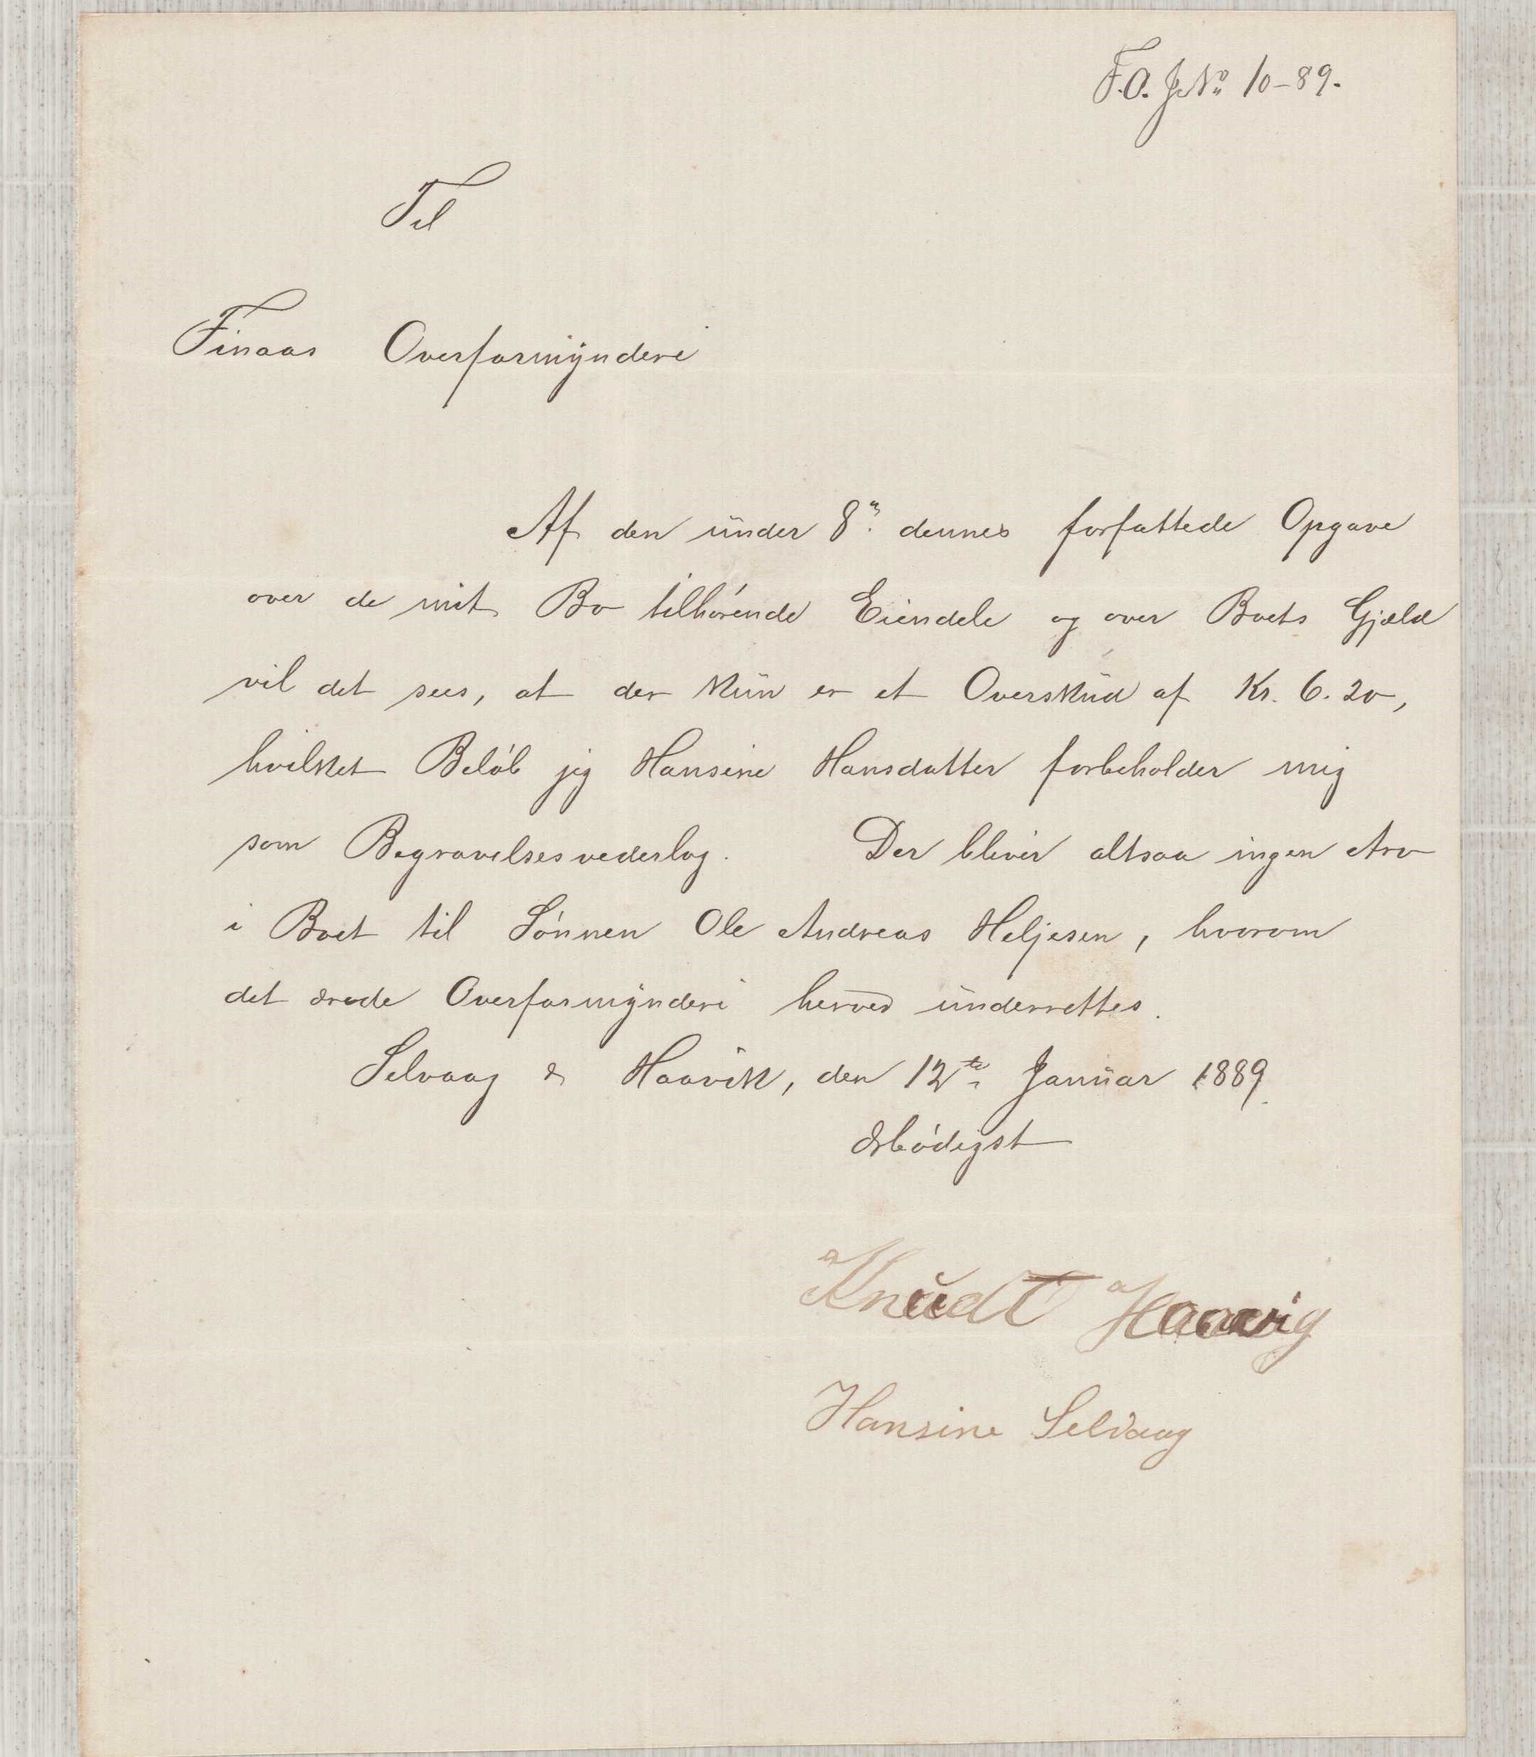 F.O. J.No 10-89.
Til
Finaas Overformynderi
Af den under 8de dennes forfattede Opgave
over de mit Bo tilhørende Eiendele og over Boets Gjæld
vil det sees, at der kun er et Overskud af Kr. 6.20,
hvilket Beløb jeg Hansine Hansdatter forbeholder mig
som Begravelsesvederlag. Der bliver altsaa ingen Arv
i Boet til Sønnen Ole Andreas Heljesen, hvorom
det ærede Overformynderi herved underrettes.
Selvaag & Haavik, den 12te Januar 1889.
Ærbødigst
Knudt Haavig
Hansine Selvaag